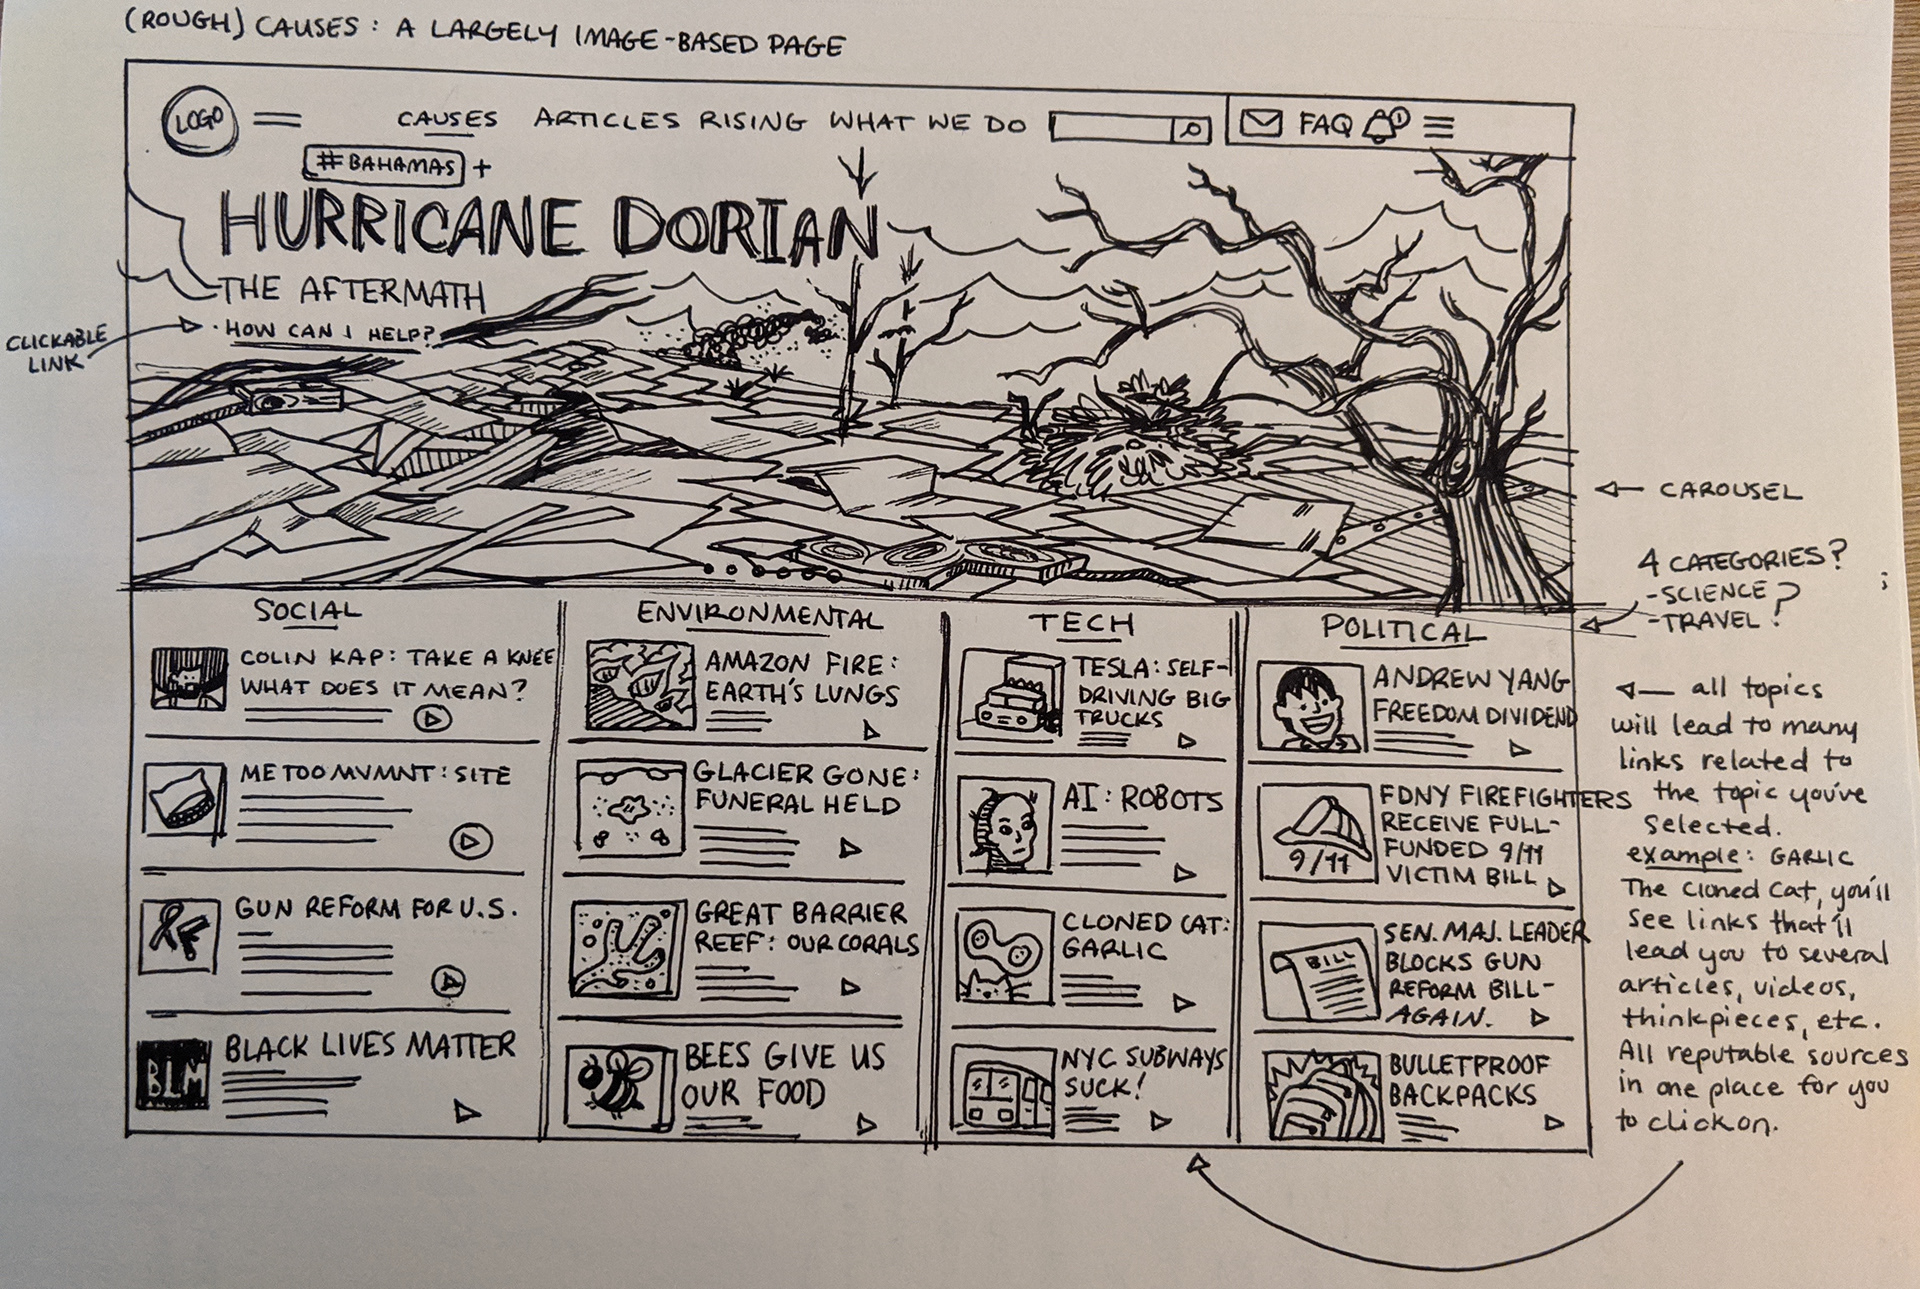 (ROUGH) CAUSES: A LARGELY IMAGE-BASED PAGE
LOGO
CAUSES ARTICLES RISING WHAT WE DO
FAQ
1
#BAHAMAS +
HURRICANE DORIAN
THE AFTERMATH
· HOW CAN I HELP?
CLICKABLE
LINK
CAROUSEL
4 CATEGORIES?
-SCIENCE?
-TRAVEL?
SOCIAL
COLIN KAP: TAKE A KNEE
WHAT DOES IT MEAN?
ME TOO MVMNT: SITE
GUN REFORM FOR U.S.
BLM
BLACK LIVES MATTER
ENVIRONMENTAL
AMAZON FIRE:
EARTH'S LUNGS
GLACIER GONE:
FUNERAL HELD
GREAT BARRIER
REEF: OUR CORALS
BEES GIVE US
OUR FOOD
TECH
TESLA: SELF-
DRIVING BIG
TRUCKS
AI: ROBOTS
CLONED CAT:
GARLIC
NYC SUBWAYS
SUCK!
POLITICAL
ANDREW YANG
FREEDOM DIVIDEND
9/11
FDNY FIREFIGHTERS
RECEIVE FULL-
FUNDED 9/11
VICTIM BILL
BILL
SEN. MAJ. LEADER
BLOCKS GUN
REFORM BILL-
AGAIN.
BULLETPROOF
BACKPACKS
all topics
will lead to many
links related to
the topic you've
selected.
example: GARLIC
The cloned cat, you'll
see links that'll
lead you to several
articles, videos,
thinkpieces, etc.
All reputable sources
in one place for you
to click on.